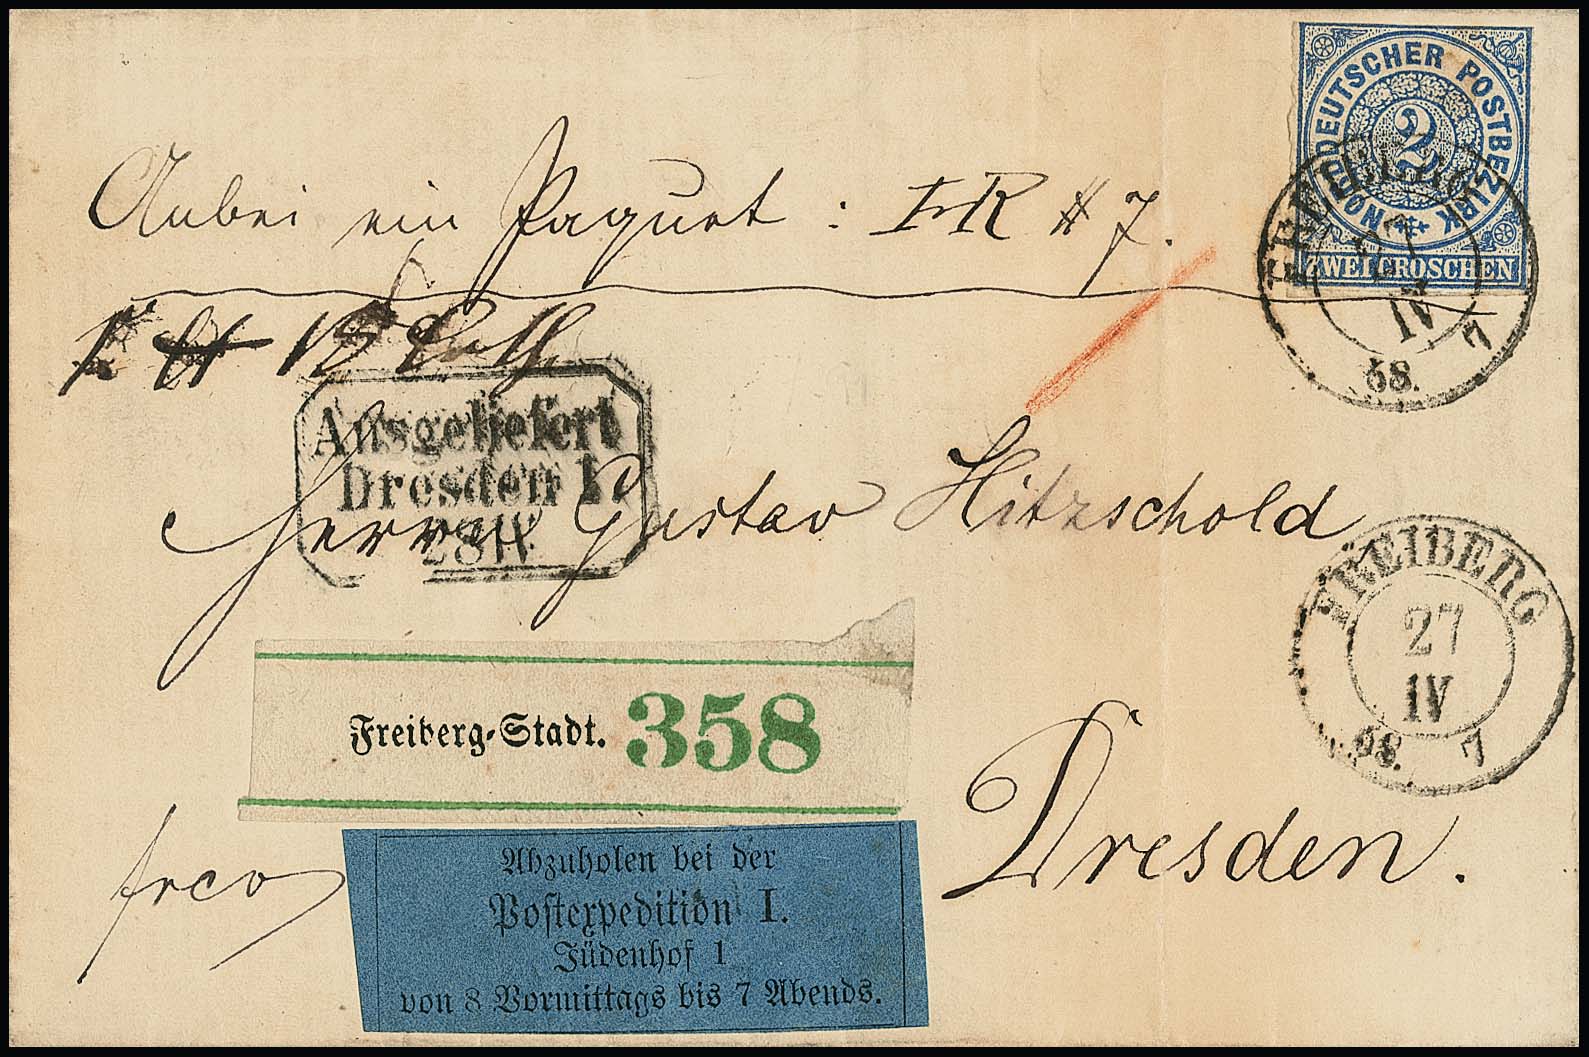 NORDDEUTSCHER POSTBEZIRK
2
ZWEI GROSCHEN
FREIBERG
27
IV
68. 7
Anbei ein Paquet: FR # 7.
Ausgeliefert
Dresden I.
28 IV.
Herrn Gustav Hitzschold
FREIBERG
27
IV
68. 7
Freiberg-Stadt. 358
Dresden.
frco
Abzuholen bei der
Postexpedition I.
Jüdenhof 1
von 8 Vormittags bis 7 Abends.